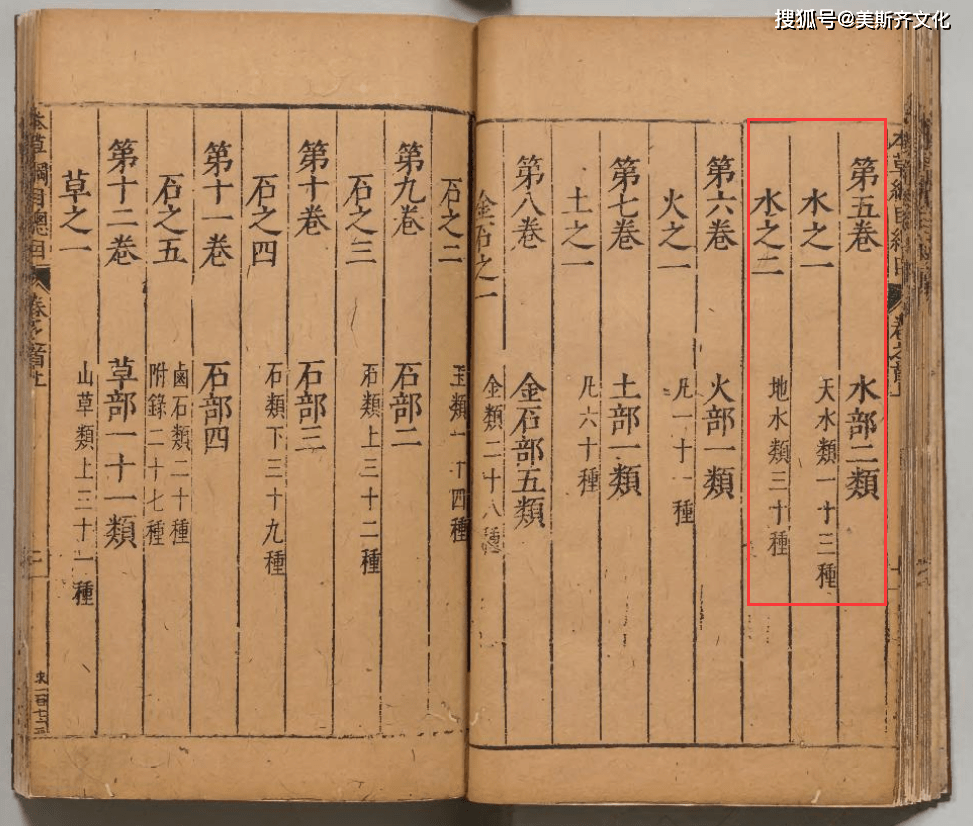 搜狐号@美斯齐文化
本草綱目總目
第五卷 水部二類
水之一 天水類一十三種
水之二 地水類三十種
第六卷 火部一類
火之一 凡一十一種
第七卷 土部一類
土之一 凡六十種
第八卷 金石部五類
金石之一 金類二十八種
石之二 玉類一十四種
第九卷 石部二
石之三 石類上三十二種
第十卷 石部三
石之四 石類下三十九種
第十一卷 石部四
石之五 鹵石類二十種
附錄二十七種
第十二卷 草部一十一類
草之一 山草類上三十一種
本草綱目總目